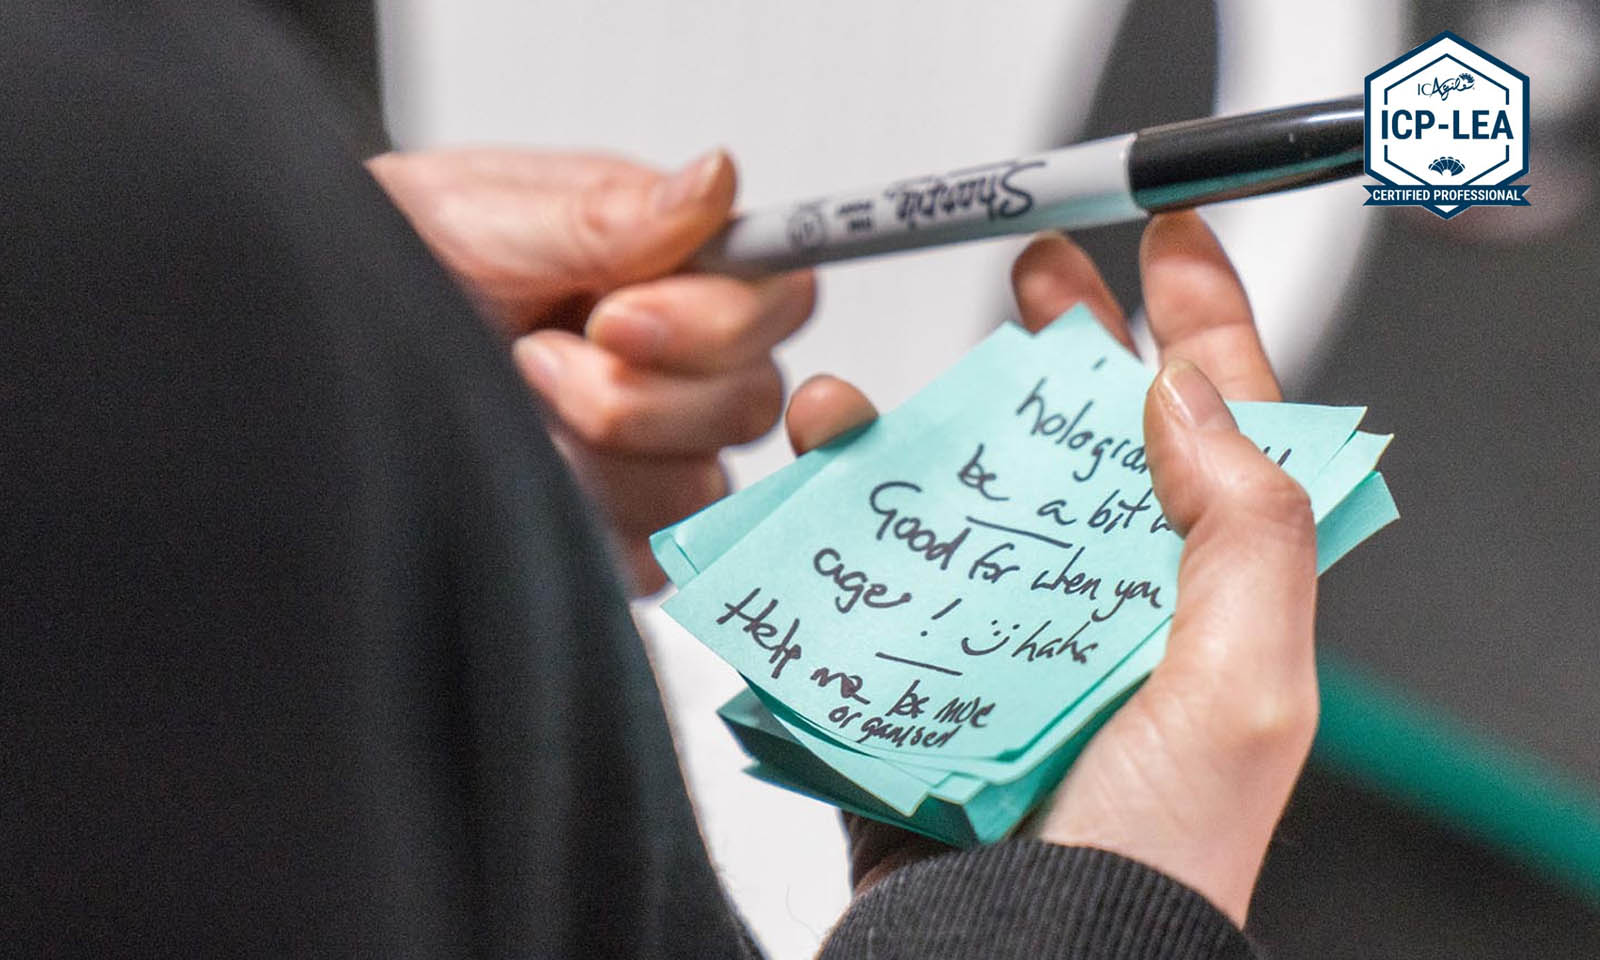 ICAgile
ICP-LEA
CERTIFIED PROFESSIONAL
Sharpie
be a bit
Good for when you
age! :) haha
Help me be more
organised